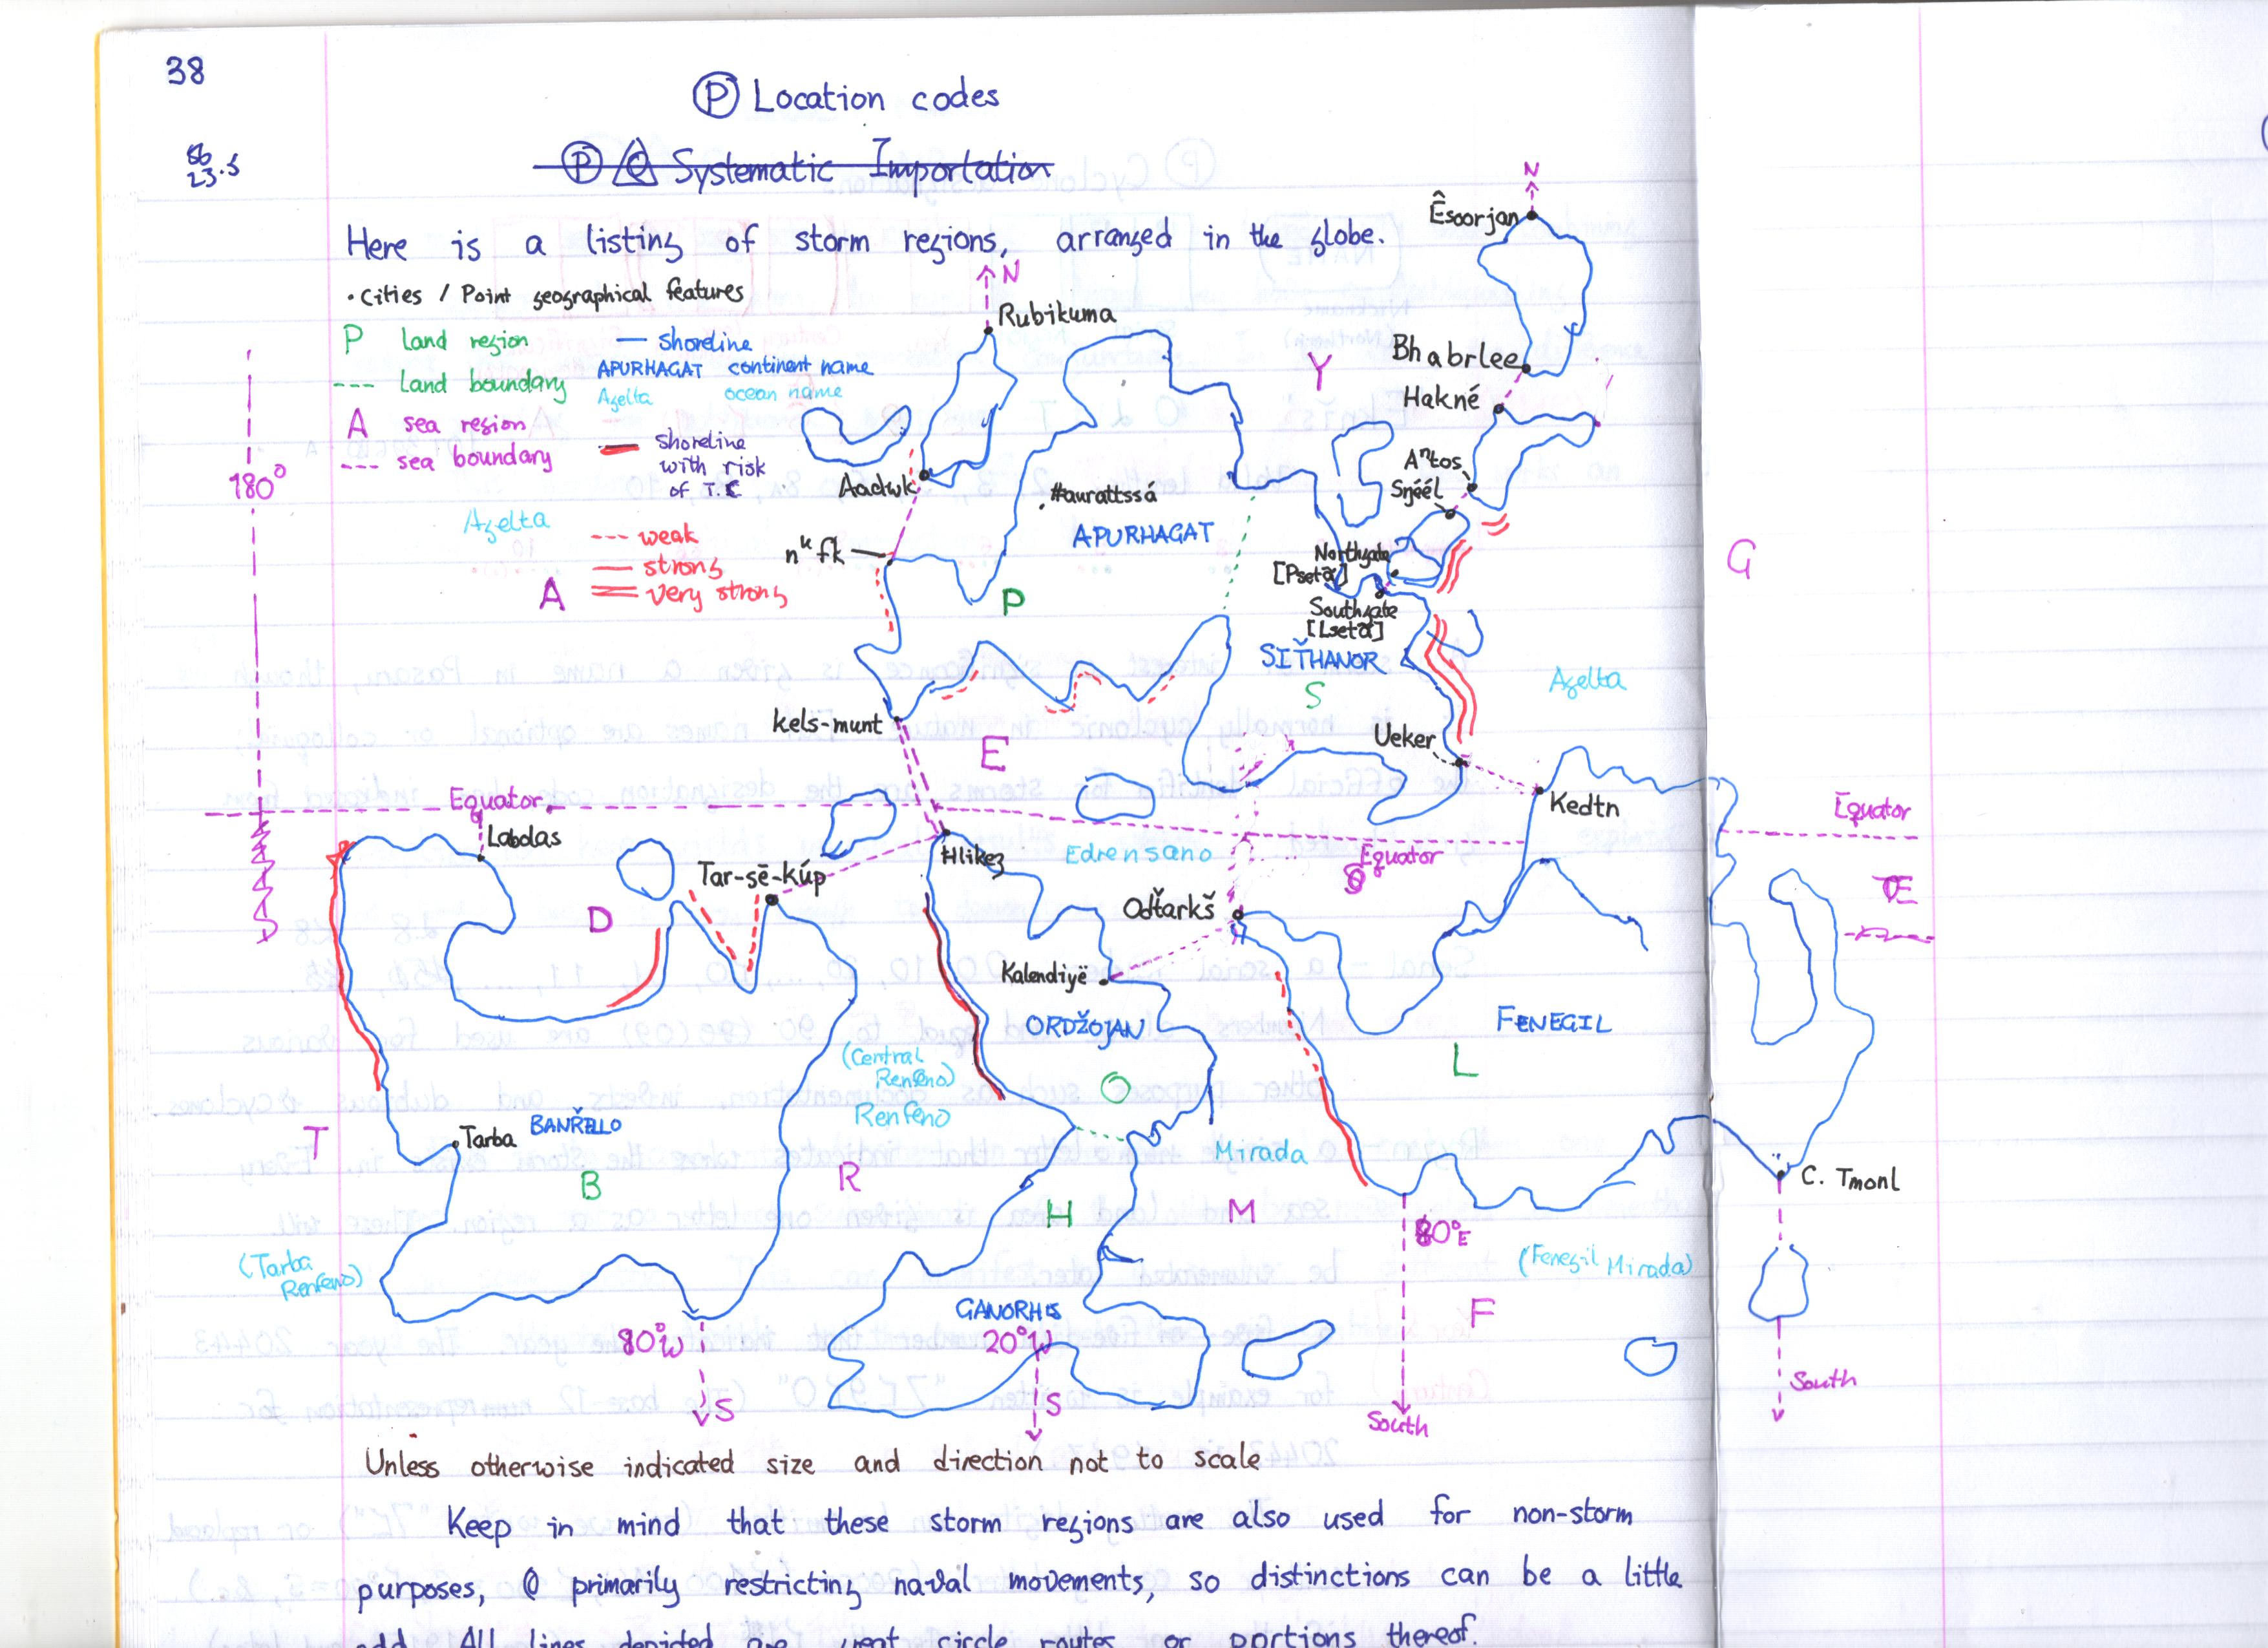 38
Ⓟ Location codes
8b
23.5
Ⓟ Systematic Importation
Here is a listing of storm regions, arranged in the globe.
• Cities / Point geographical features
P land region
--- Land boundary
A sea region
--- sea boundary
— shoreline
APURHAGAT continent name
Azelta ocean name
shoreline
with risk
of T.C
--- weak
strong
very strong
180°
Azelta
A
N
Rubikuma
Aadwk
nᵘfk
#aurattssá
APURHAGAT
P
Y
N
Êsoorjan
Bhabrlee
Hakné
Aⁿtos
Sŋéél
Northgate
[Psetã]
Southgate
[Lsetã]
SIŤHANOR
S
G
Azelta
kels-munt
E
Ueker
Kedtn
Equator
Equator
Labdas
Tar-sē-kúp
Hlikez
Edrensano
Equator
D
Odťarkš
Kalendiyë
ORDŽOJAN
O
(Central
Renfeno)
Renfeno
FENEGIL
L
T
Tarba
BANŘELLO
B
R
H
Mirada
M
C. Tmonl
80°E
(Fenegil Mirada)
F
(Tarba
Renfeno)
GANORHIS
80°W
20°W
S
S
South
South
Unless otherwise indicated size and direction not to scale
Keep in mind that these storm regions are also used for non-storm
purposes, primarily restricting naval movements, so distinctions can be a little
odd. All lines depicted are great circle routes or portions thereof.